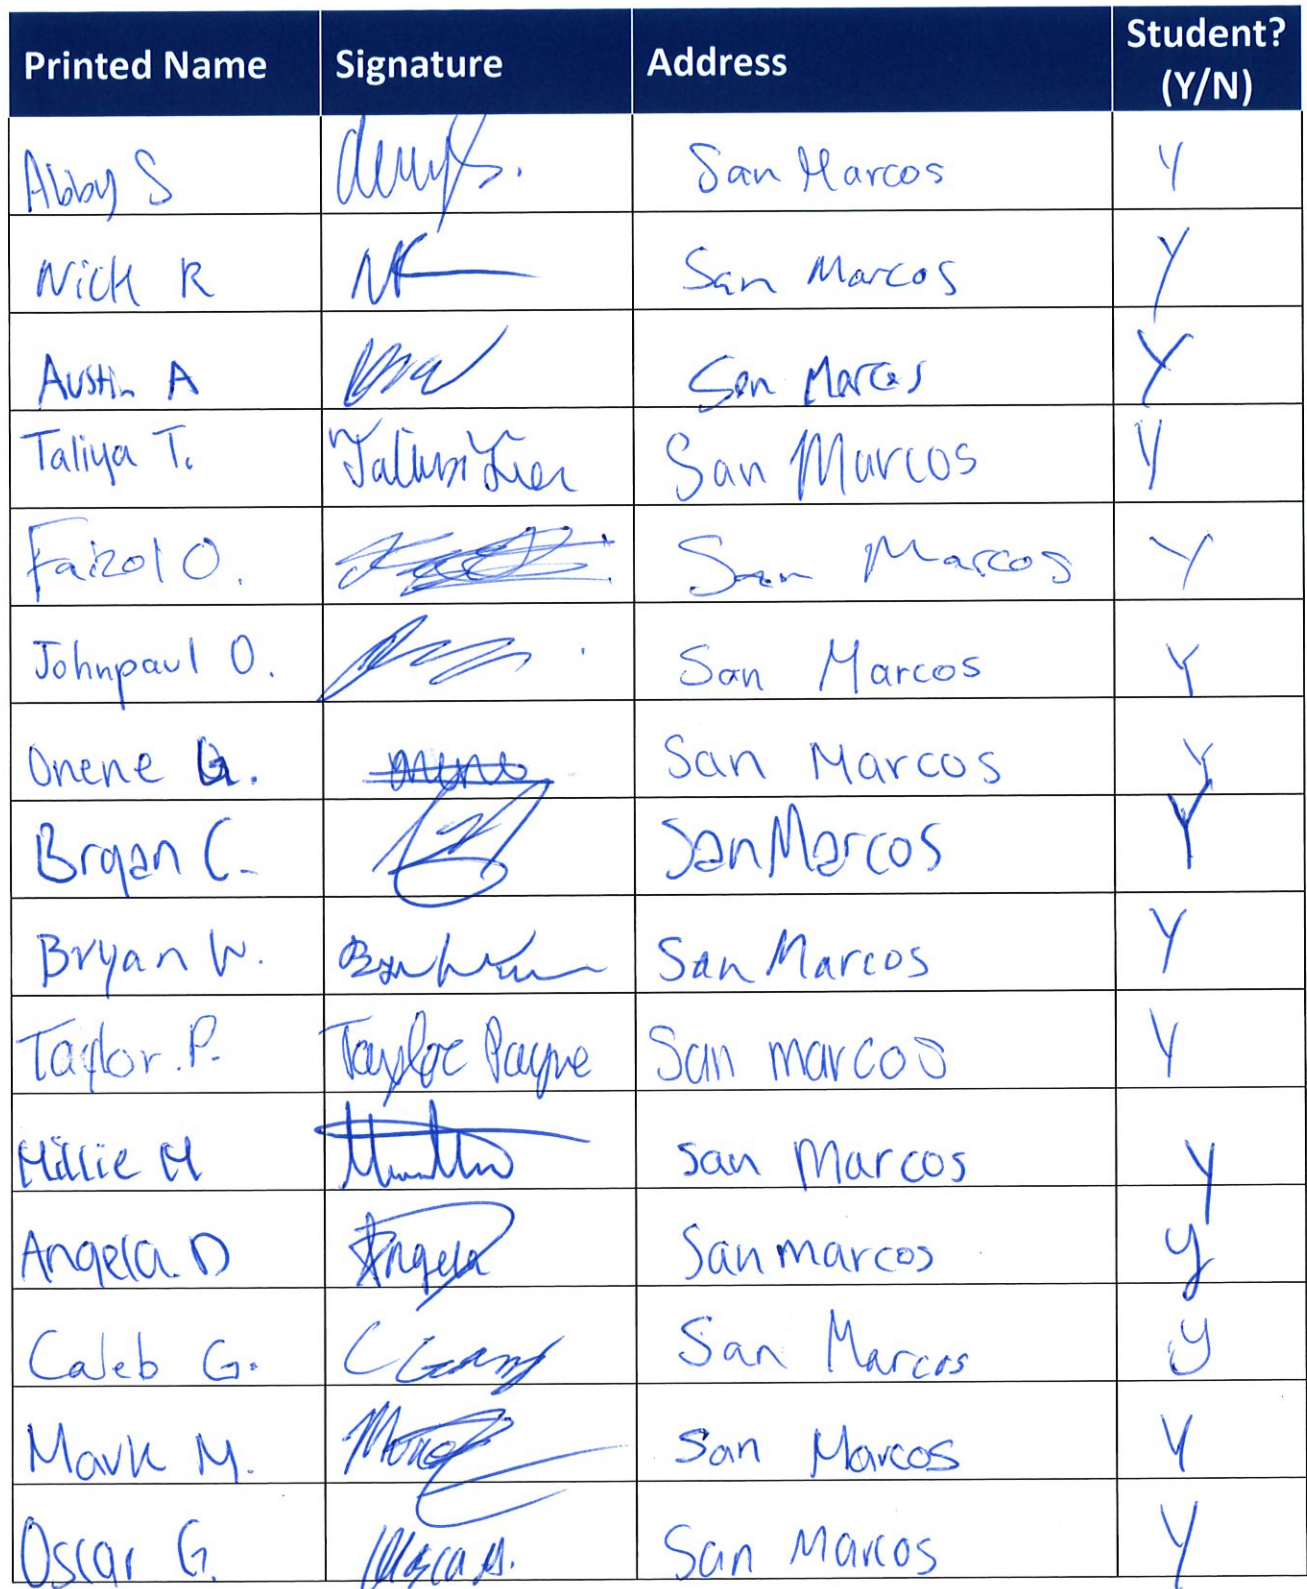 Printed Name Signature Address Student? (Y/N)
Abby S San Marcos Y
Nick R NR San Marcos Y
Austin A San Marcos Y
Taliya T. San Marcos Y
Faizol O. San Marcos Y
Johnpaul O. San Marcos Y
Onene G. San Marcos Y
Bryan C. San Marcos Y
Bryan W. San Marcos Y
Taylor P. Taylor Payne San marcos Y
Millie M San Marcos Y
Angela D Angela San marcos y
Caleb G. San Marcos y
Mark M. San Marcos Y
Oscar G. San Marcos Y